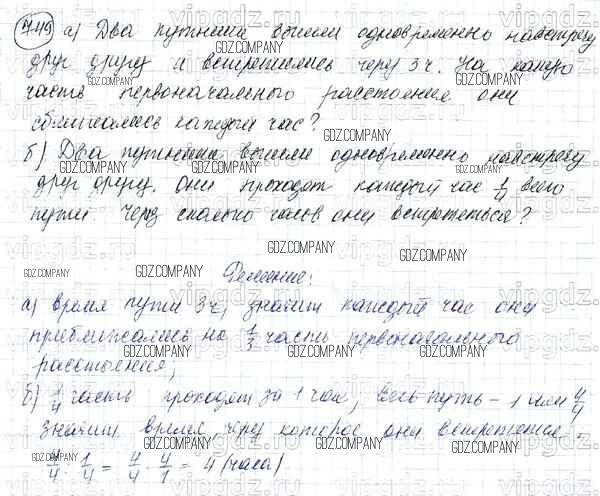 749 а) Два путника вышли одновременно навстречу
друг другу и встретились через 3 ч. На какую
часть первоначального расстояния они
сближались каждый час?
б) Два путника вышли одновременно навстречу
друг другу. Они проходят каждый час 1/4 всего
пути. Через сколько часов они встретятся?
Решение:
а) время пути 3 ч, значит каждый час они
приближались на 1/3 часть первоначального
расстояния;
б) 1/4 часть проходят за 1 час, весь путь – 1 или 4/4
значит время, через которое они встретятся
4/4 : 1/4 = 4/4 · 4/1 = 4 (часа)